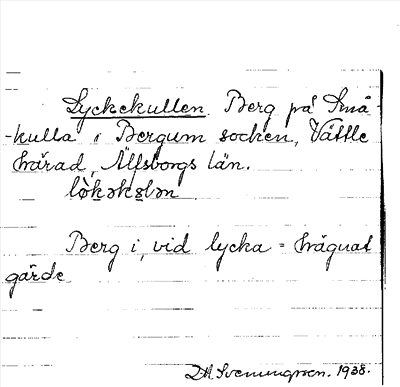 Lyckekullen Berg på Små-
-kulla i Bergum socken, Vättle
härad, Älfsborgs län.
lò̱kəkələn
Berg i, vid lycka = hägnat
gärde
D.A. Svenungsson. 1938.